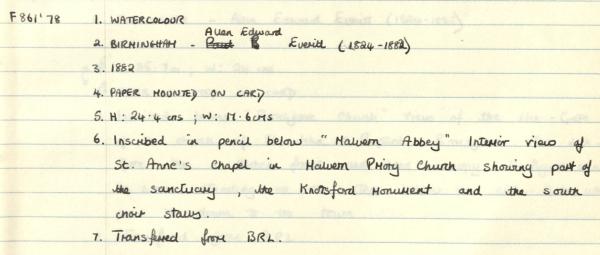 F861'78 1. WATERCOLOUR
Allen Edward
2. BIRMINGHAM - Everitt (1824-1882)
3. 1852
4. PAPER MOUNTED ON CARD
5. H: 24.4 cms ; W: 17.6 cms
6. Inscribed in pencil below "Malvern Abbey" Interior view of
St. Anne's Chapel in Malvern Priory Church showing part of
the sanctuary, the Knotsford Monument and the south
choir stalls.
7. Transferred from BRL.